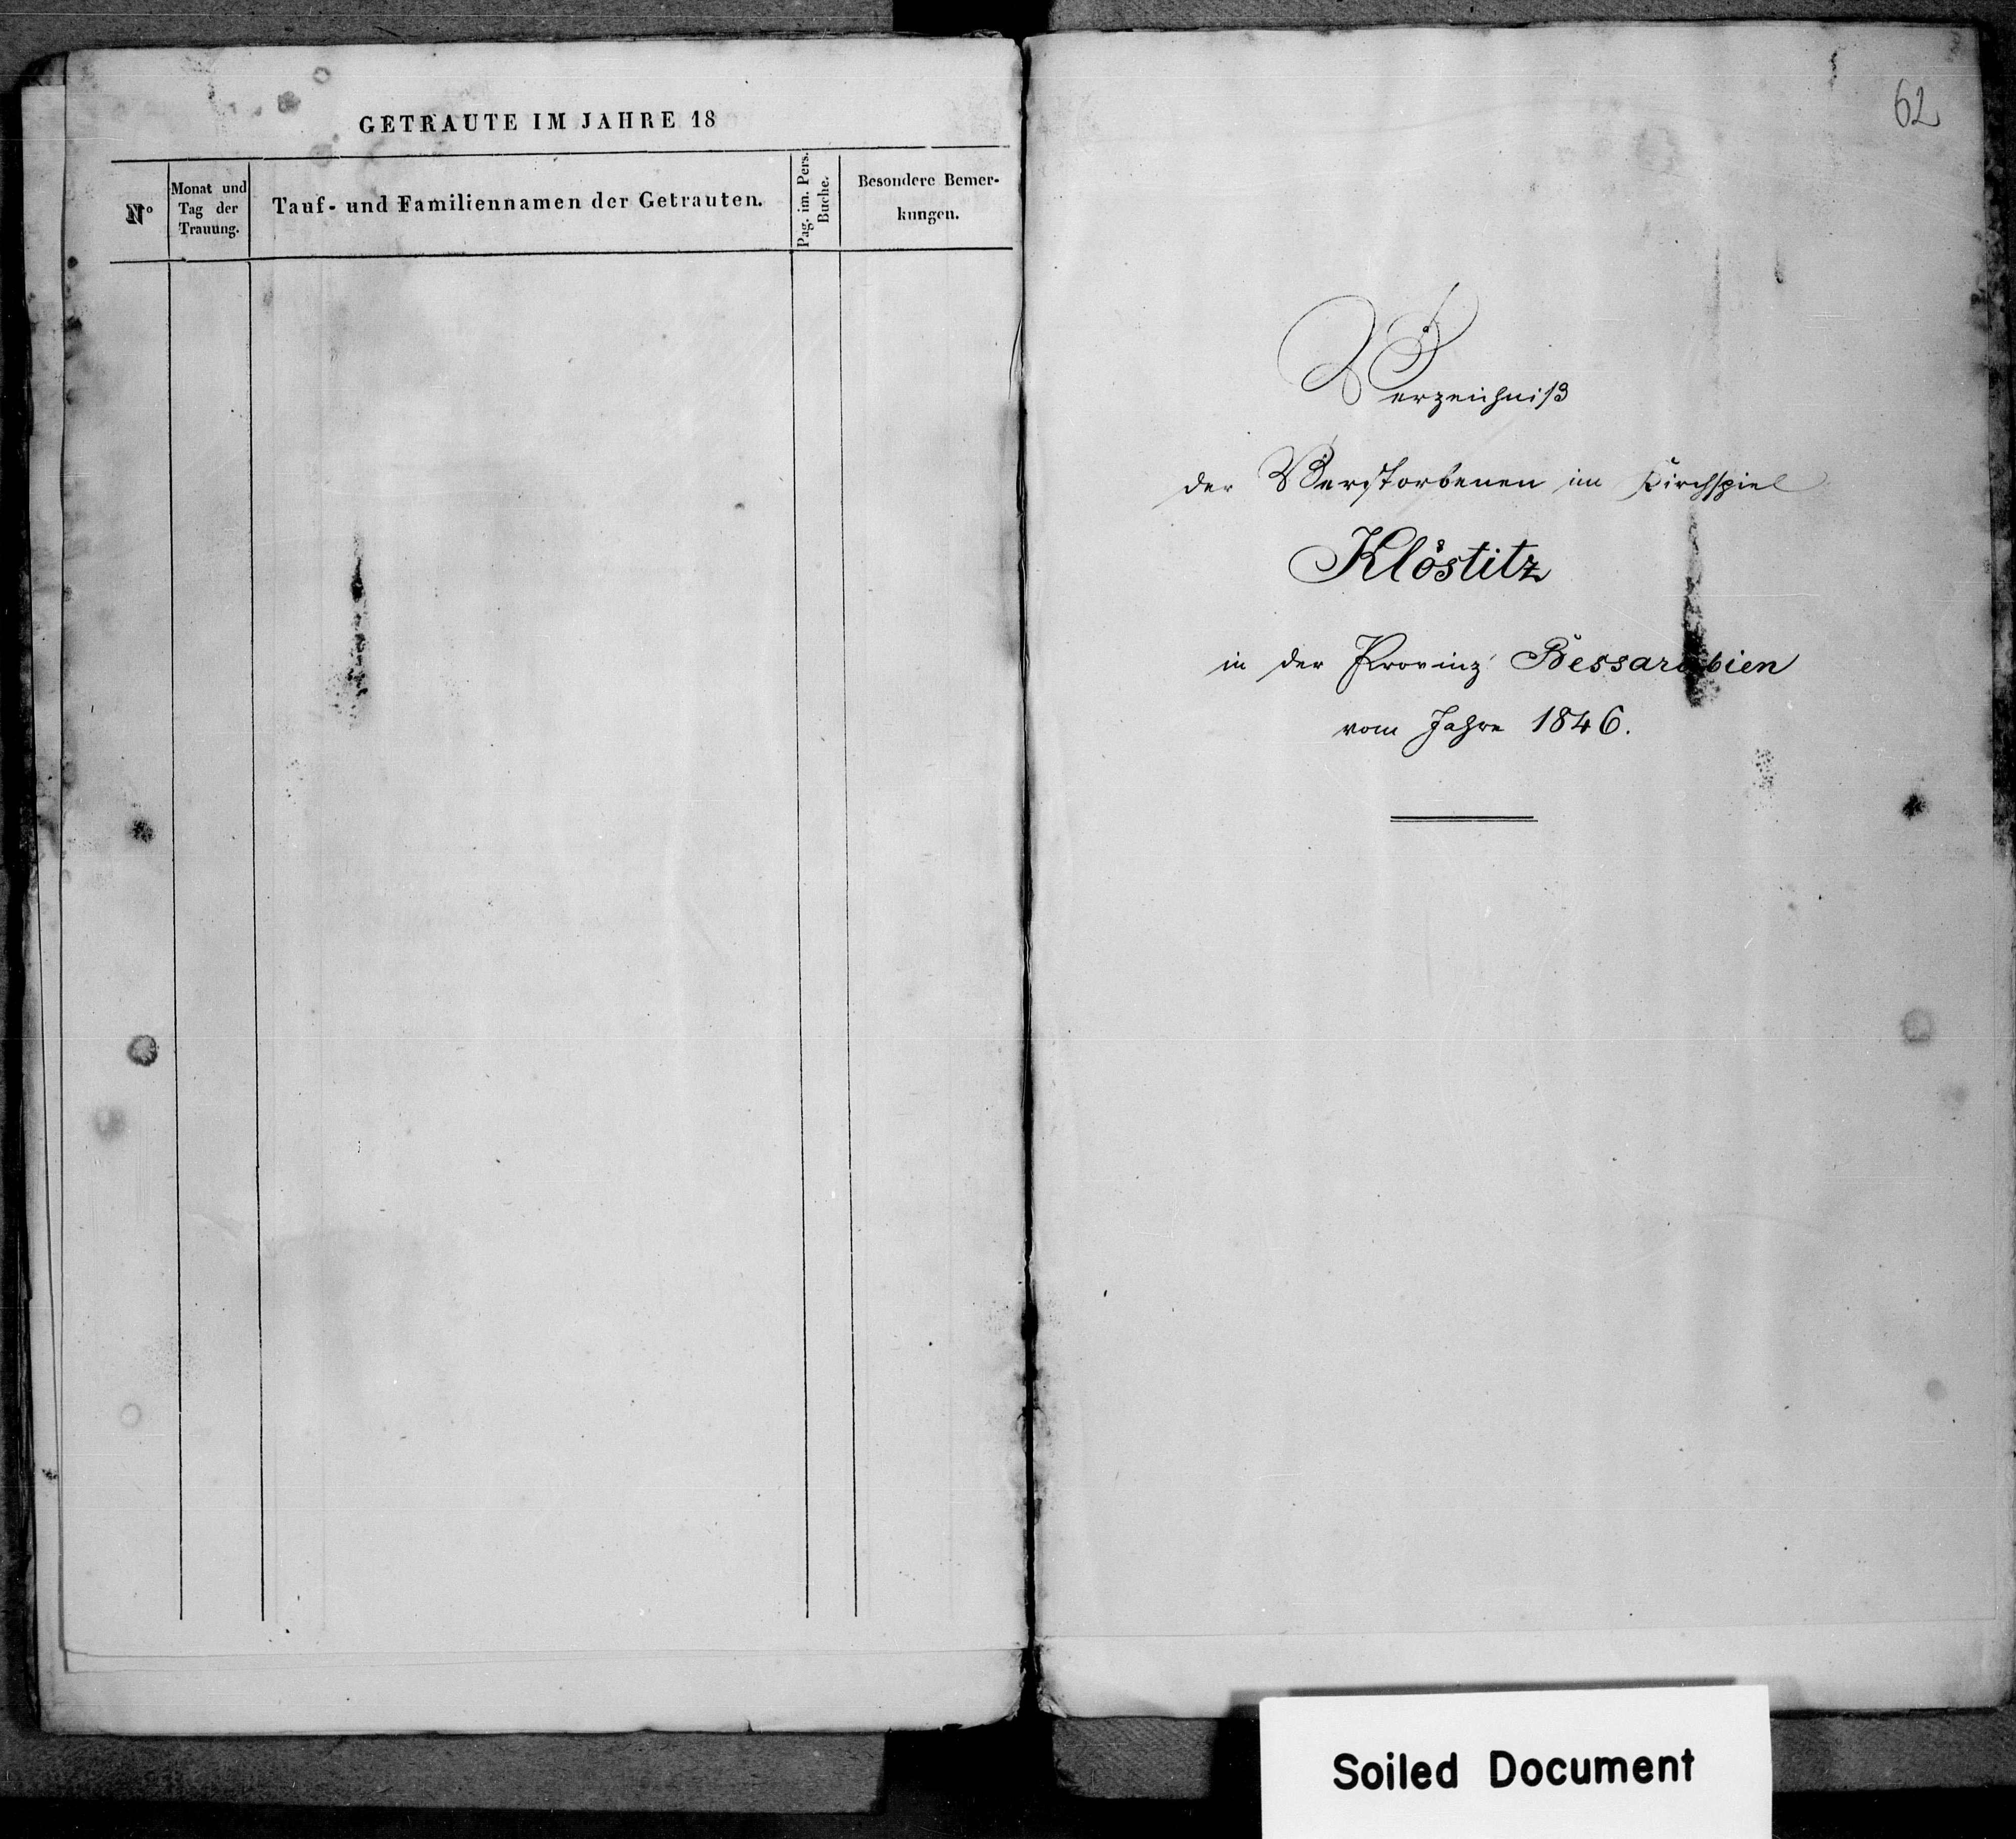 GETRAUTE IM JAHRE 18
No
Monat und
Tag der
Trauung.
Tauf- und Familiennamen der Getrauten.
Pag. im. Pers.
Buche.
Besondere Bemer-
kungen.
62
Verzeichniß
der Verstorbenen im Kirchspiel
Klöstitz
in der Provinz Bessarabien
vom Jahre 1846.
Soiled Document